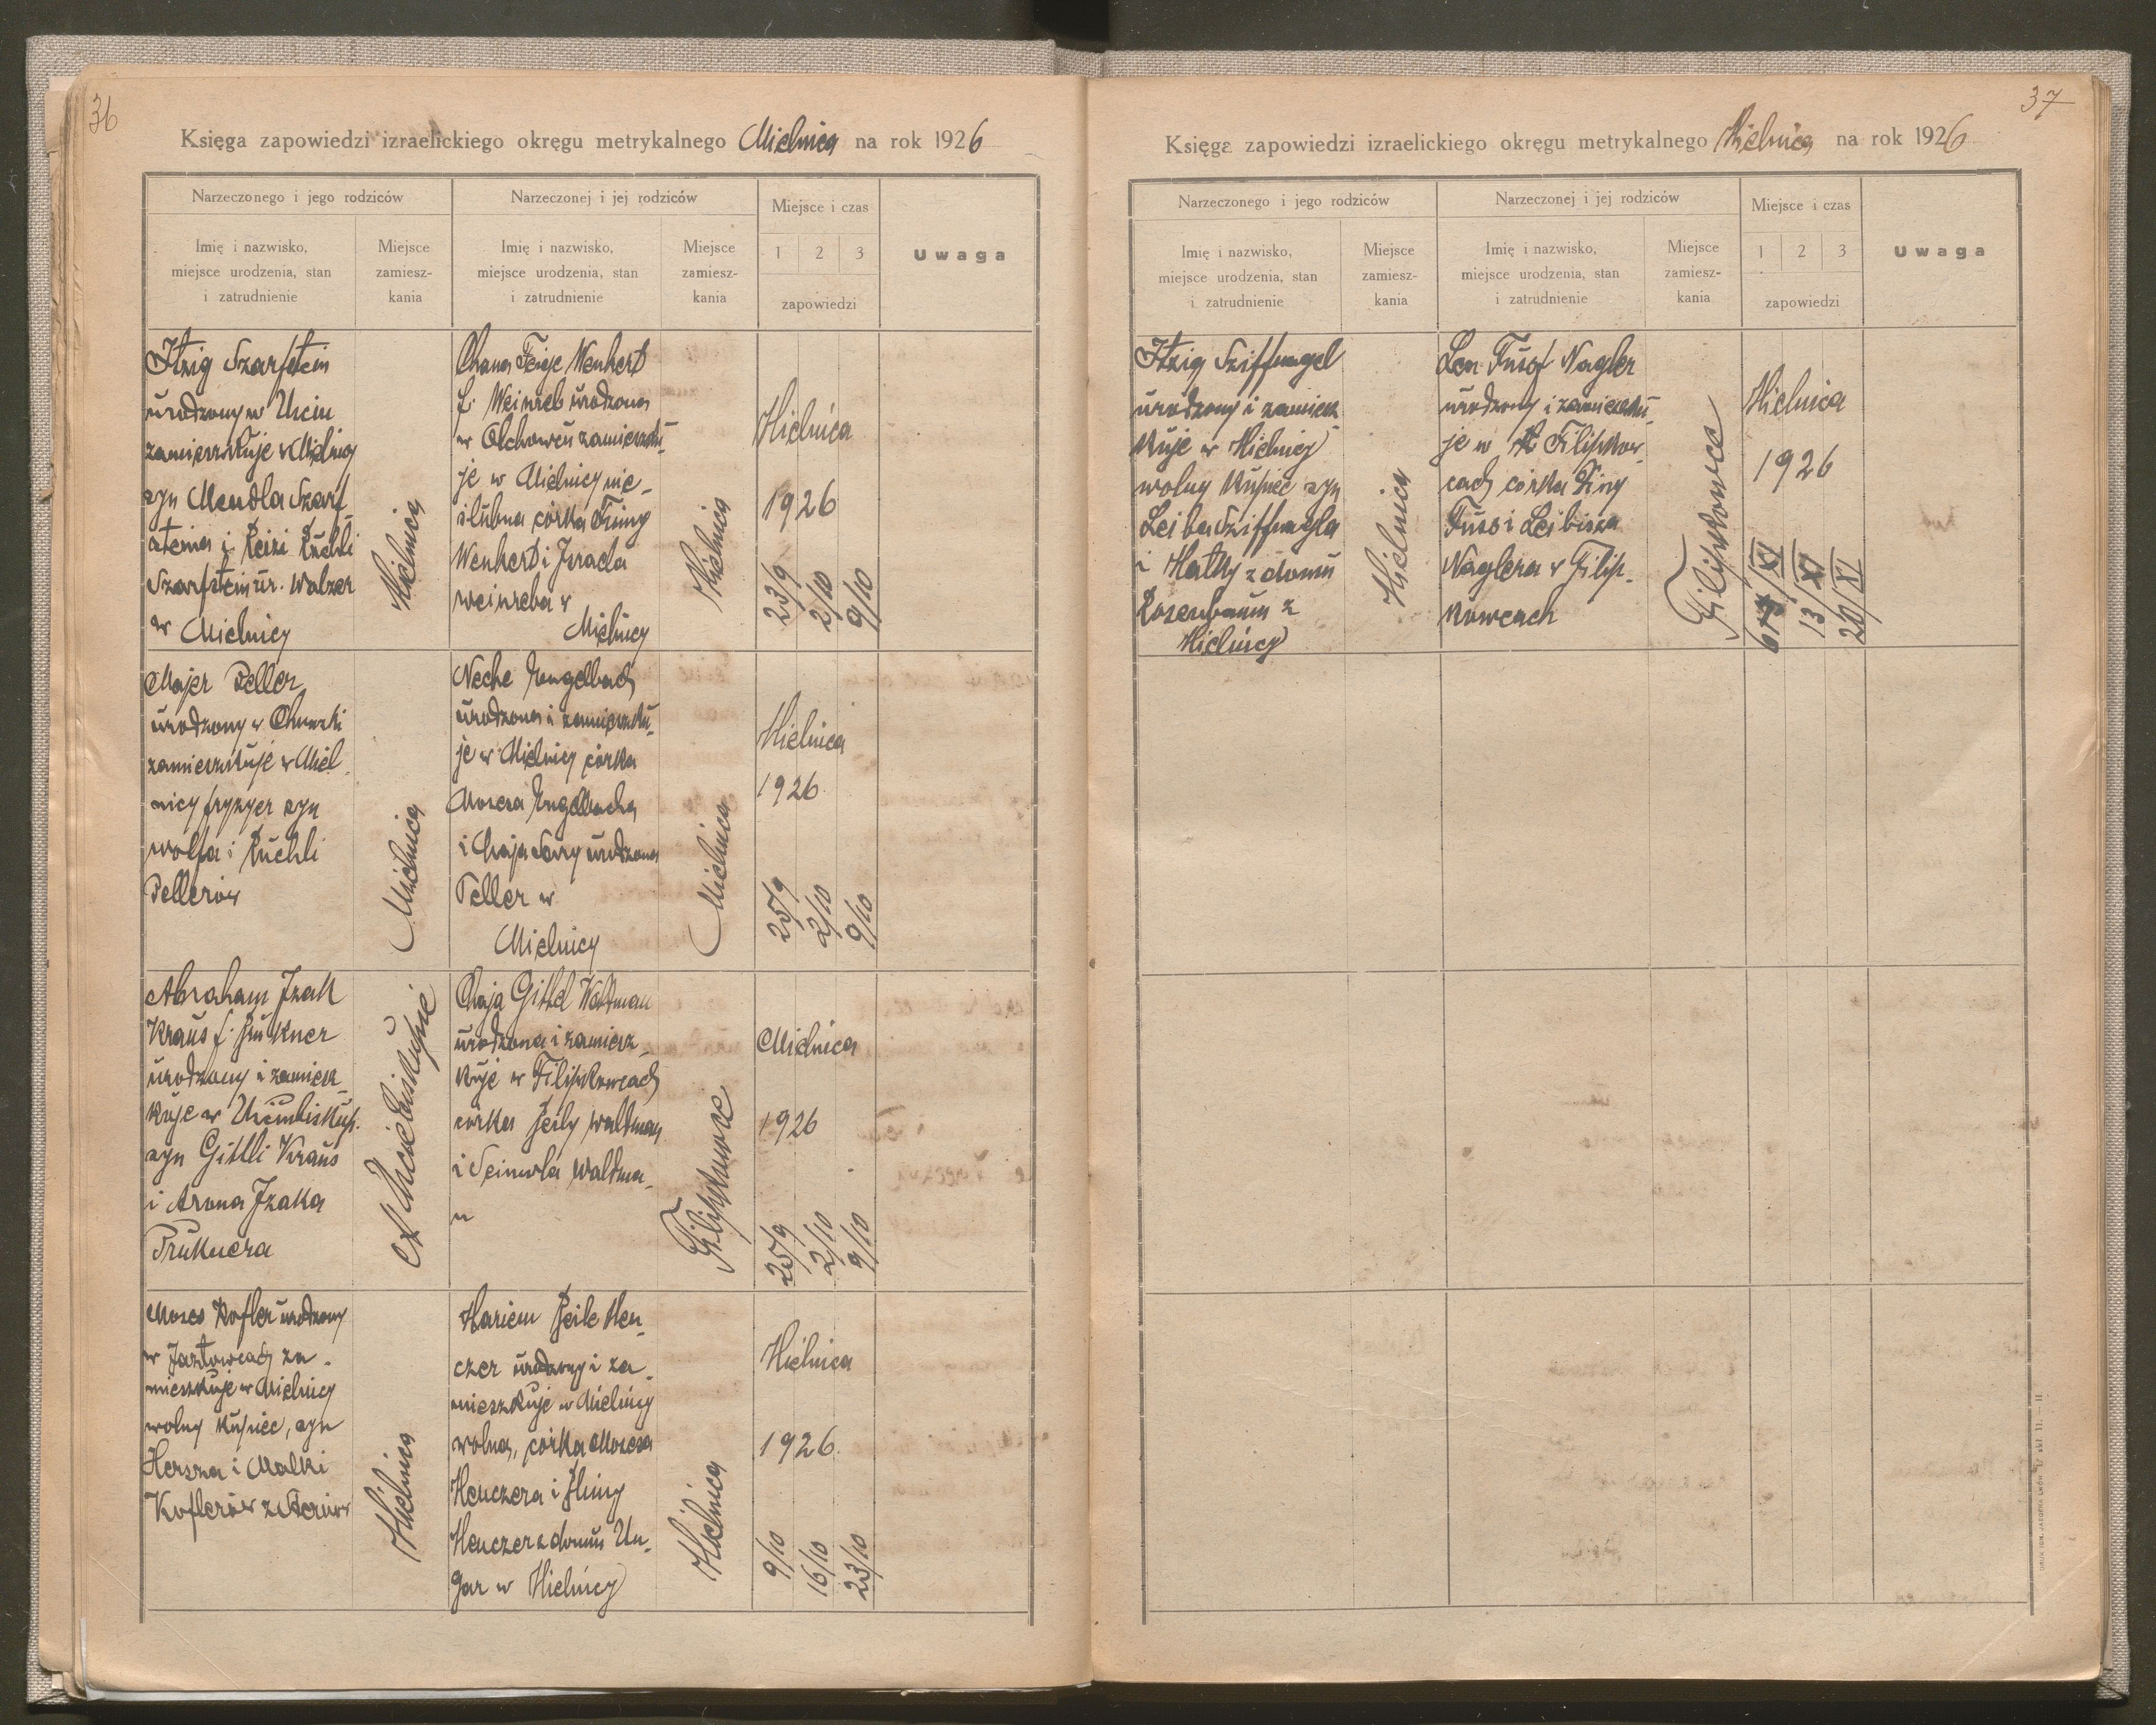 36
Księga zapowiedzi izraelickiego okręgu metrykalnego Mielnica na rok 1926
Narzeczonego i jego rodziców
Narzeczonej i jej rodziców
Miejsce i czas
Uwaga
Imię i nazwisko,
miejsce urodzenia, stan
i zatrudnienie
Miejsce
zamiesz-
kania
Imię i nazwisko,
miejsce urodzenia, stan
i zatrudnienie
Miejsce
zamiesz-
kania
1 2 3
zapowiedzi
Itzig Szarfstein
urodzony w Uściu
zamieszkuje w Mielnicy
syn Mendla Szarf
steina i Reizi Ruchli
Szarfstein ur. Walzer
w Mielnicy
Mielnica
Chana Feige Wenkert
f. Weinreb urodzona
w Olchowcu zamieszku-
je w Mielnicy nie-
ślubna córka Frimy
Wenkert i Israela
Weinreba w
Mielnicy
Mielnica
Mielnica
1926
23/9
2/10
9/10
Majer Peller
urodzony w
zamieszkuje w Miel-
nicy fryzyer syn
Wolfa i Ruchli
Pellerów
Mielnica
Neche Engelbach
urodzona i zamieszku-
je w Mielnicy córka
Mosesa Engelbacha
i Chaja Sary urodzona
Peller w
Mielnicy
Mielnica
Mielnica
1926
25/9
2/10
9/10
Abraham Izak
Kraus f. Prukner
urodzony i zamiesz-
kuje w Uściubiskup.
syn Gittli Kraus
i Arona Izaka
Pruknera
Uście biskupie
Chaja Gittel Waltman
urodzona i zamiesz-
kuje w Filipkowcach
córka Perly Waltman
i Waltma-
n
Filipkowce
Mielnica
1926
25/9
2/10
9/10
Moses Kofler urodzony
w Jazłowcach za-
mieszkuje w Mielnicy
wolny kupiec, syn
Hersza i Malki
Koflerów z
Mielnica
Mariem Beile Hen-
czer urodzony i za-
mieszkuje w Mielnicy
wolna, córka Mosesa
Henczera i
Henczer z domu Un-
gar w Mielnicy
Mielnica
Mielnica
1926
9/10
16/10
23/10
37
Księga zapowiedzi izraelickiego okręgu metrykalnego Mielnica na rok 1926
Narzeczonego i jego rodziców
Narzeczonej i jej rodziców
Miejsce i czas
Uwaga
Imię i nazwisko,
miejsce urodzenia, stan
i zatrudnienie
Miejsce
zamiesz-
kania
Imię i nazwisko,
miejsce urodzenia, stan
i zatrudnienie
Miejsce
zamiesz-
kania
1 2 3
zapowiedzi
Itzig Sziffnagel
urodzony i zamiesz-
kuje w Mielnicy
wolny kupiec syn
Leiba Sziffnagla
i Matky z domu
Rosenbaum z
Mielnicy
Mielnica
Lea Fuss f Nagler
urodzony i zamieszku-
je w Filipkow-
cach córka Diny
Fuss i Leibisza
Naglera w Filip-
kowcach
Filipkowce
Mielnica
1926
6/XI
13/XI
20/XI